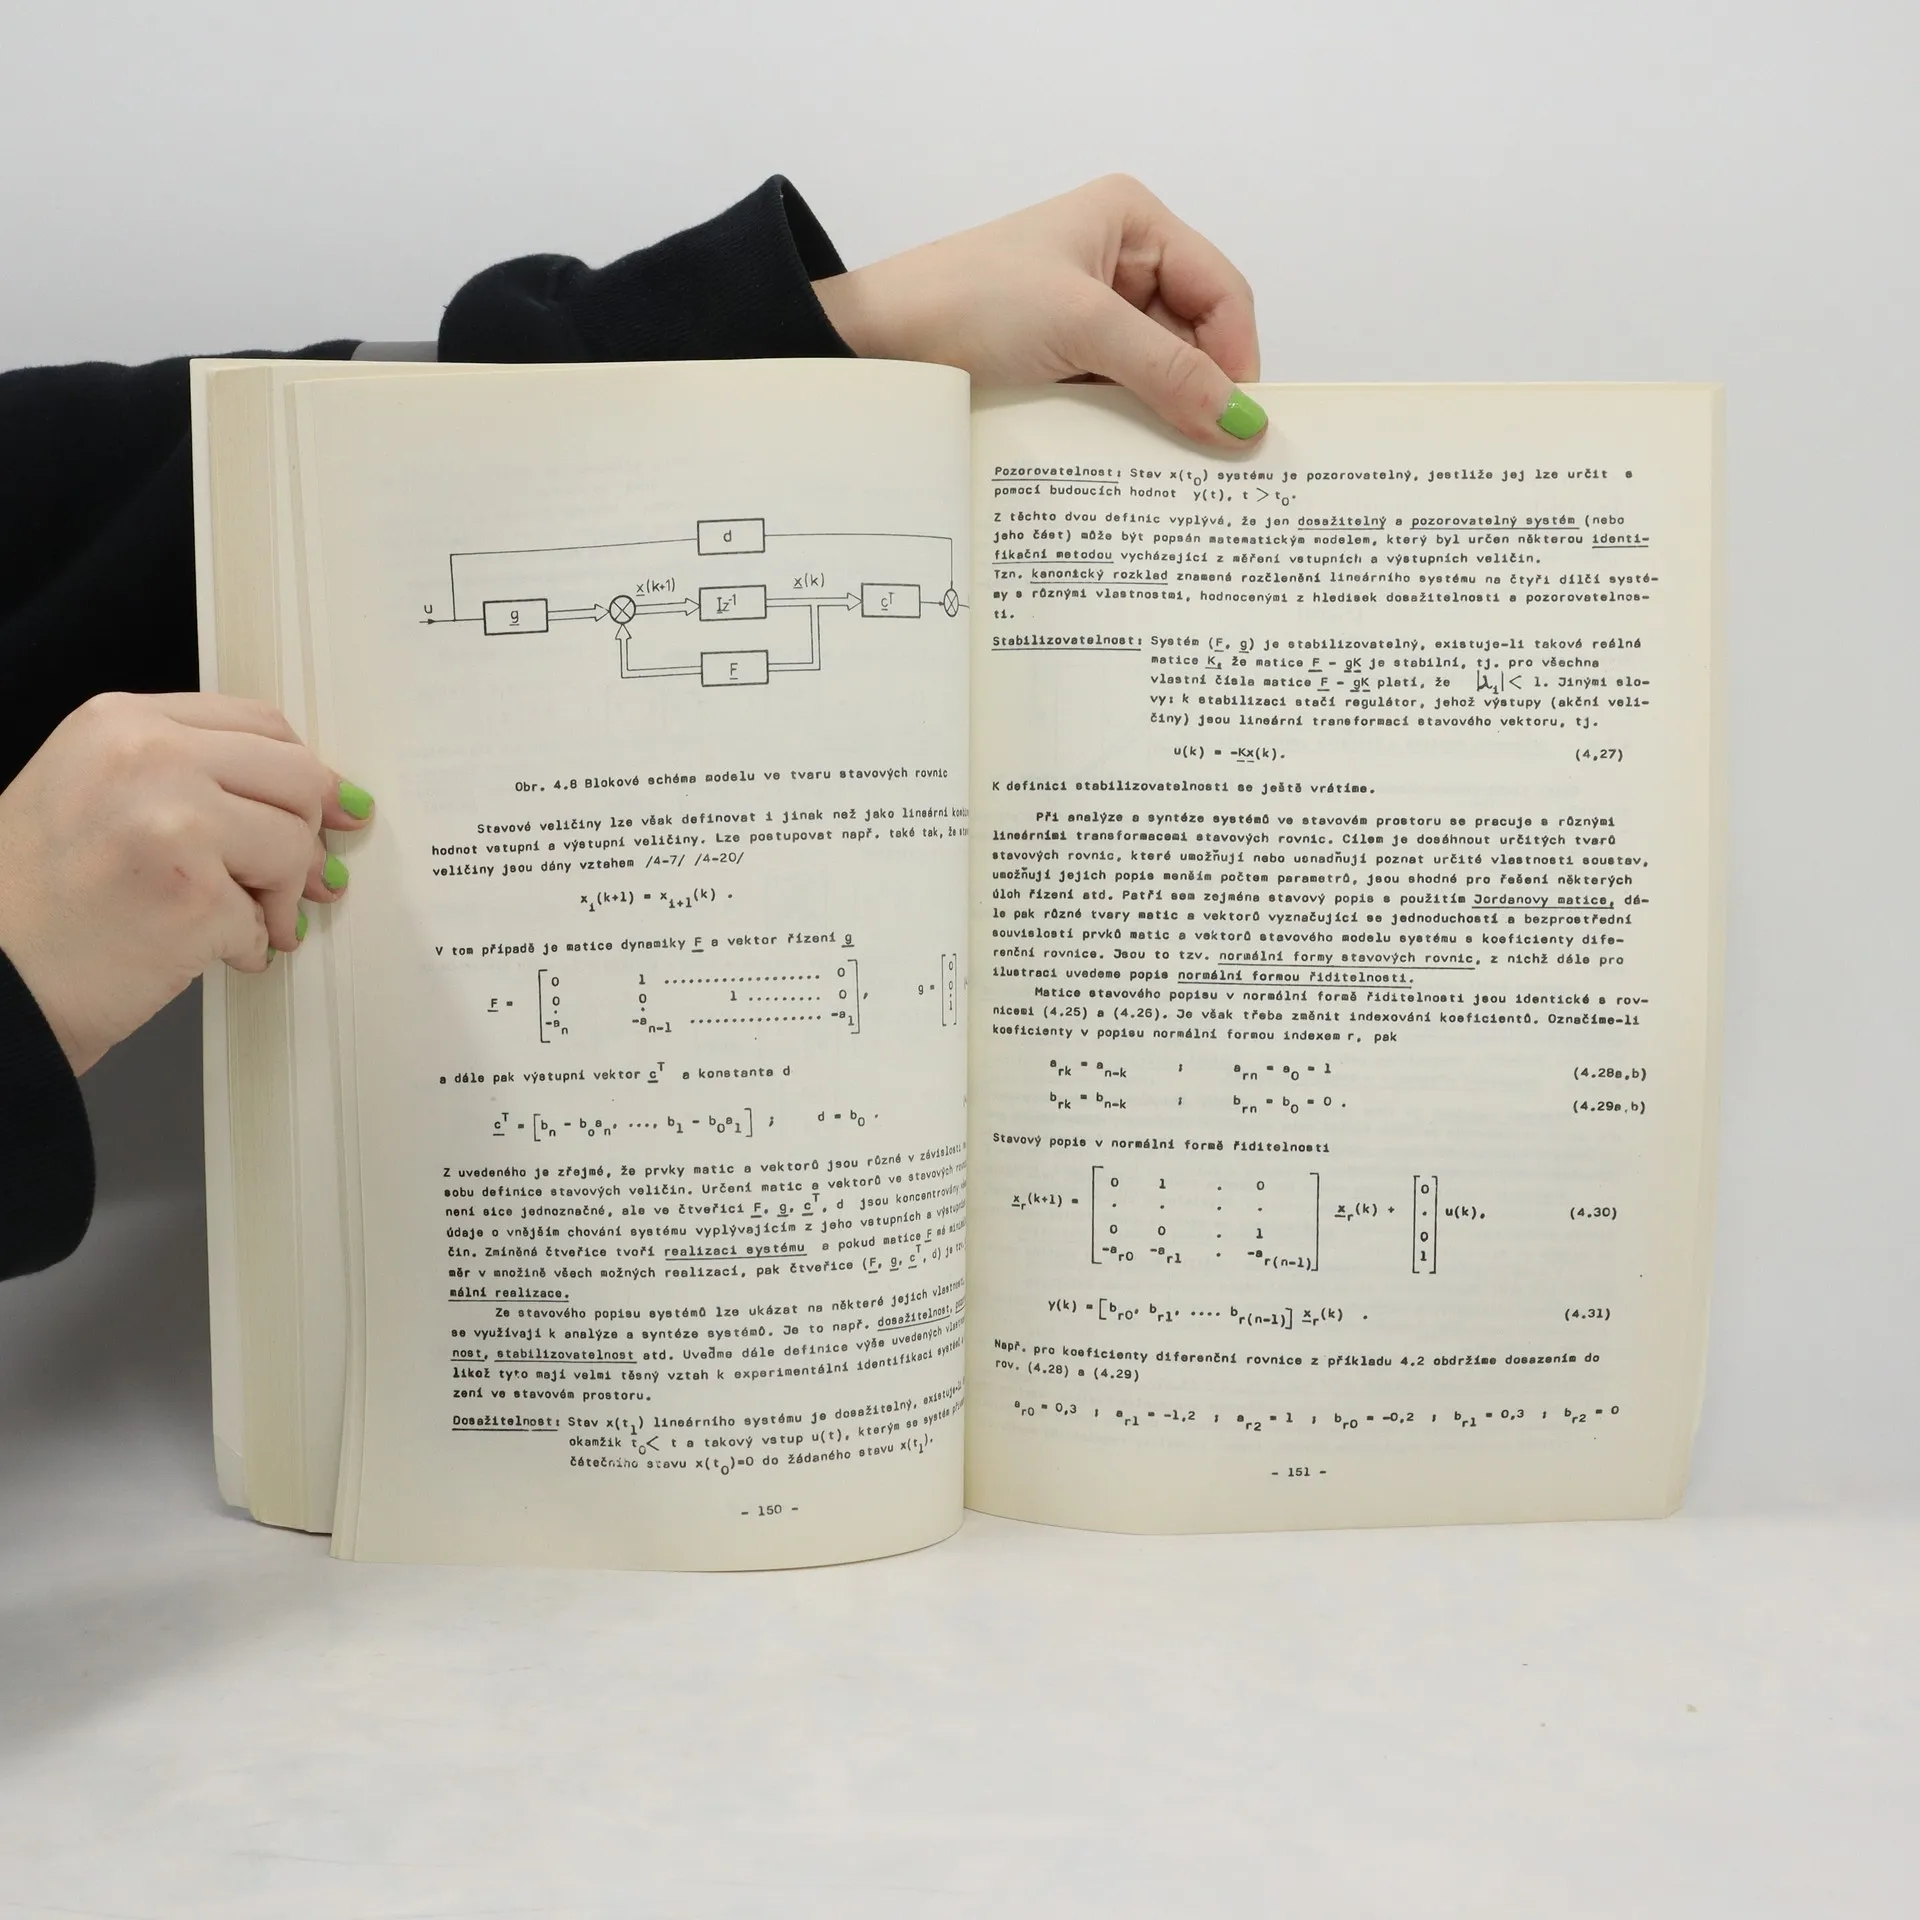 d
x(k+1)
x(k)
u
g
Iz⁻¹
cᵀ
F
Obr. 4.8 Blokové schéma modelu ve tvaru stavových rovnic
Stavové veličiny lze však definovat i jinak než jako lineární
hodnot vstupní a výstupní veličiny. Lze postupovat např. také tak, že
veličiny jsou dány vztahem /4-7/ /4-20/
x_i(k+1) = x_{i+1}(k) .
V tom případě je matice dynamiky F a vektor řízení g
F = [ 0 1 .................... 0
0 0 1 ......... 0
-a_n -a_{n-1} ................ -a_1 ] , g = [ 0 0 . 1 ]
a dále pak výstupní vektor cᵀ a konstanta d
cᵀ = [b_n - b_0a_n, ...., b_1 - b_0a_1] ; d = b_0 .
Z uvedeného je zřejmé, že prvky matic a vektorů jsou různé v závislosti
sobu definice stavových veličin. Určení matic a vektorů ve stavových
není sice jednoznačné, ale ve čtveřici F, g, cᵀ, d jsou koncentrovány
údaje o vnějším chování systému vyplývajícím z jeho vstupních a
čin. Zmíněná čtveřice tvoří realizaci systému a pokud matice F má
měr v množině všech možných realizací, pak čtveřice (F, g, cᵀ, d) je
mální realizace.
Ze stavového popisu systémů lze ukázat na některé jejich
se využívají k analýze a syntéze systémů. Je to např. dosažitelnost,
nost, stabilizovatelnost atd. Uveďme dále definice výše uvedených
likož tyto mají velmi těsný vztah k experimentální identifikaci
zení ve stavovém prostoru.
Dosažitelnost: Stav x(t_1) lineárního systému je dosažitelný,
okamžik t_0< t a takový vstup u(t), kterým se systém
čátečního stavu x(t_0)=0 do žádaného stavu x(t_1).
- 150 -
Pozorovatelnost: Stav x(t_0) systému je pozorovatelný, jestliže jej lze určit s
pomocí budoucích hodnot y(t), t > t_0.
Z těchto dvou definic vyplývá, že jen dosažitelný a pozorovatelný systém (nebo
jeho část) může být popsán matematickým modelem, který byl určen některou identi-
fikační metodou vycházející z měření vstupních a výstupních veličin.
Tzn. kanonický rozklad znamená rozčlenění lineárního systému na čtyři dílčí systé-
my s různými vlastnostmi, hodnocenými z hledisek dosažitelnosti a pozorovatelnos-
ti.
Stabilizovatelnost: Systém (F, g) je stabilizovatelný, existuje-li taková reálná
matice K, že matice F - gK je stabilní, tj. pro všechna
vlastní čísla matice F - gK platí, že |λ_i| < 1. Jinými slo-
vy: k stabilizaci stačí regulátor, jehož výstupy (akční veli-
činy) jsou lineární transformací stavového vektoru, tj.
u(k) = -Kx(k). (4,27)
K definici stabilizovatelnosti se ještě vrátíme.
Při analýze a syntéze systémů ve stavovém prostoru se pracuje s různými
lineárními transformacemi stavových rovnic. Cílem je dosáhnout určitých tvarů
stavových rovnic, které umožňují nebo usnadňují poznat určité vlastnosti soustav,
umožňují jejich popis menším počtem parametrů, jsou shodné pro řešení některých
úloh řízení atd. Patří sem zejména stavový popis s použitím Jordanovy matice, dá-
le pak různé tvary matic a vektorů vyznačující se jednoduchostí a bezprostřední
souvislostí prvků matic a vektorů stavového modelu systému s koeficienty dife-
renční rovnice. Jsou to tzv. normální formy stavových rovnic, z nichž dále pro
ilustraci uvedeme popis normální formou řiditelnosti.
Matice stavového popisu v normální formě řiditelnosti jsou identické s rov-
nicemi (4.25) a (4.26). Je však třeba změnit indexování koeficientů. Označíme-li
koeficienty v popisu normální formou indexem r, pak
a_rk = a_n-k ; a_rn = a_0 = 1 (4.28a,b)
b_rk = b_n-k ; b_rn = b_0 = 0 . (4.29a,b)
Stavový popis v normální formě řiditelnosti
x_r(k+1) = [ 0 1 . 0
. . . .
0 0 . 1
-a_r0 -a_r1 . -a_r(n-1) ] x_r(k) + [ 0 . 0 1 ] u(k), (4.30)
y(k) = [b_r0, b_r1, .... b_r(n-1)] x_r(k) . (4.31)
Např. pro koeficienty diferenční rovnice z příkladu 4.2 obdržíme dosazením do
rov. (4.28) a (4.29)
a_r0 = 0,3 ; a_r1 = -1,2 ; a_r2 = 1 ; b_r0 = -0,2 ; b_r1 = 0,3 ; b_r2 = 0
- 151 -